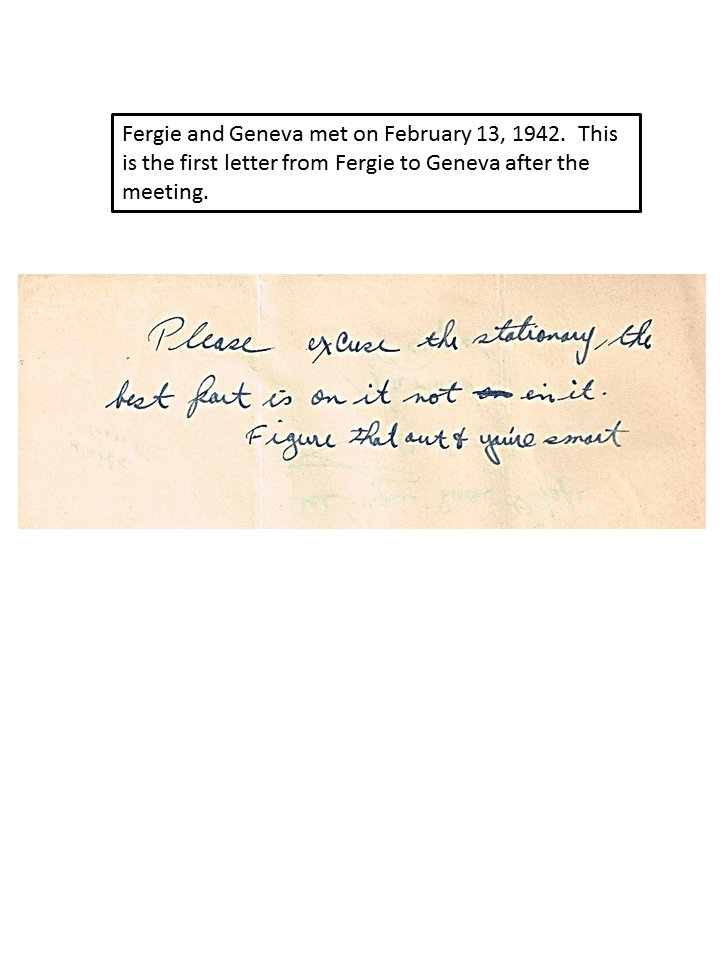 Fergie and Geneva met on February 13, 1942. This
is the first letter from Fergie to Geneva after the
meeting.
Please excuse the stationary, the
best part is on it not in it.
Figure that out & you're smart